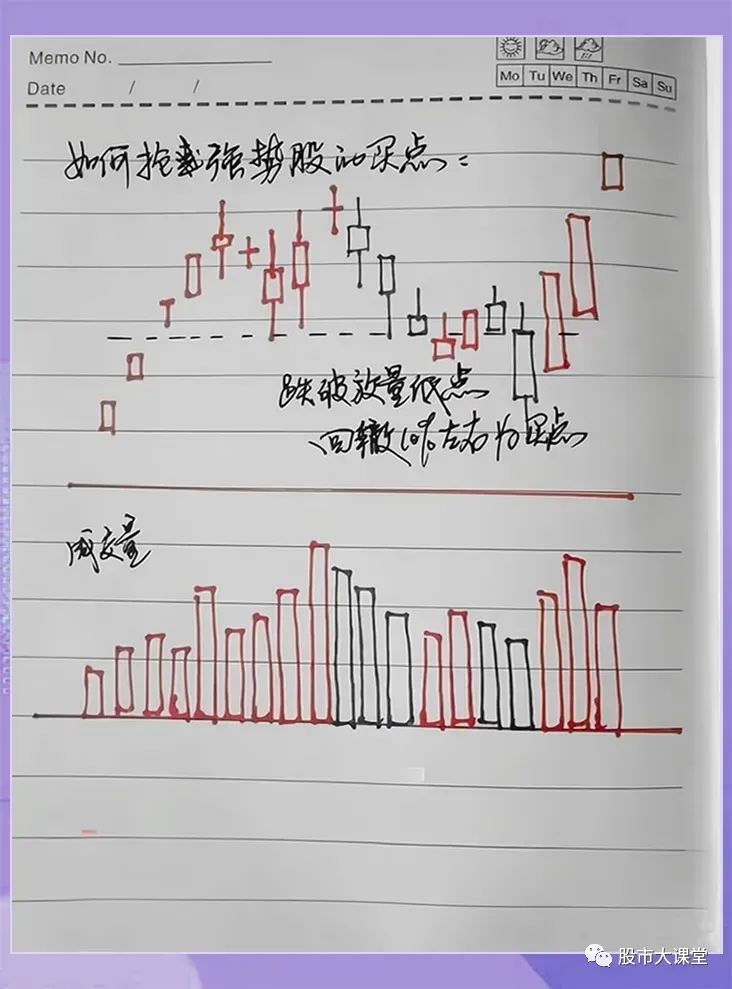 Memo No.
Date / /
Mo Tu We Th Fr Sa Su
如何抢强势股的买点：
跌破放量低点
回辙10%左右为买点
成交量
股市大课堂